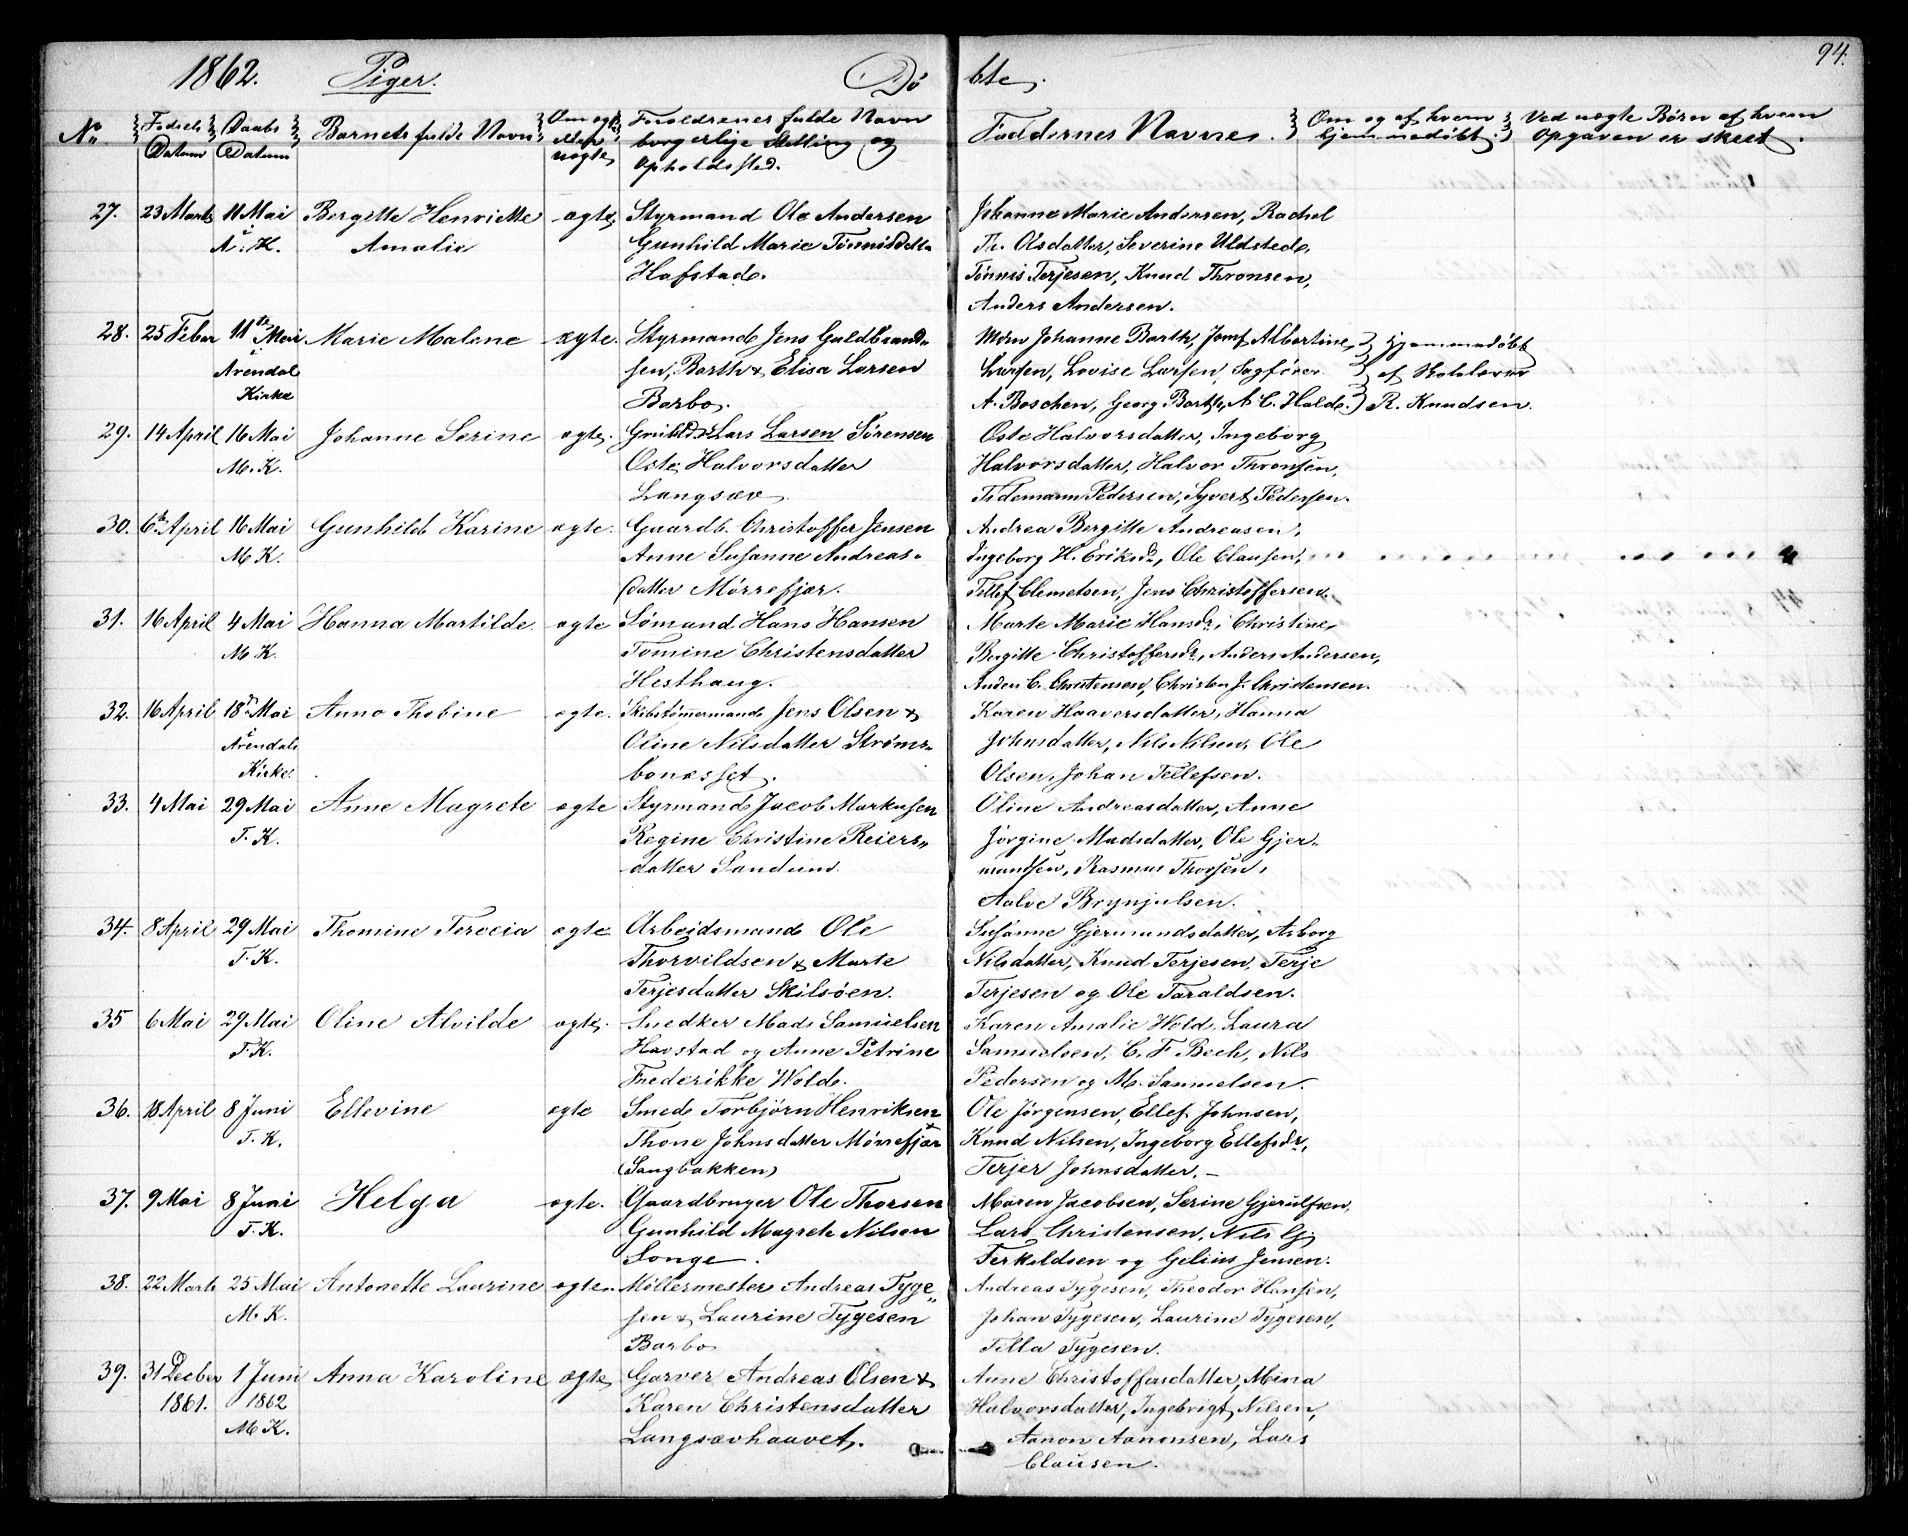 94.
1862. Piger. Døbte.
No. Fødsels Datum Daabs Datum Barnets fulde Navn Om ægte eller uægte Forældrenes fulde Navn borgerlige Stilling og Opholdssted. Faddernes Navne. Om og af hvem hjemmedøbt. Ved uægte Børn af hvem Opgaven er skeet.
27. 23 Marts 11 Mai Bergitte Henriette ægte Styrmand Ole Andersen Johanne Marie Andersen, Rachel
i A. K. Amalie Gunhild Marie Tønnisdatt. Th. Olsdatter, Severine Uldstede,
Hafstad. Tønnis Terjesen, Knud Thronsen,
Anders Andersen.
28. 25 Febar 11te Mai Marie Malene ægte. Styrmand Jens Guldbrand- Mdm Johanne Barth, Jomf Albertine hjemmedøbt
i Arendal sen, Barth & Elisa Larsen Larsen, Lovise Larsen, Sagfører af Skolelærer
Kirke Barbo. A. Boschen, Georg Barth, A. C. Halde. R. Knudsen.
29. 14 April 16 Mai Johanne Serine ægte. Lars Larsen Sørensen Oste Halvorsdatter, Ingeborg
M. K. Oste Halvorsdatter Halvorsdatter, Halvor Thronsen,
Langsæv Tidemann Pedersen, Syvert Pedersen.
30. 6te April 16 Mai Gunhild Karine ægte. Gaardb. Christoffer Jensen Andrea Bergitte Andreasen,
M K. Anne Susanne Andreas- Ingeborg H. Eriksdr, Ole Clausen,
datter Mørrefjær. Tellef Clemetsen, Jens Christoffersen.
31. 16 April 4 Mai Hanna Martilde ægte Sømand Hans Hansen Marte Marie Hansdr, Christine
M K. Tomine Christensdatter Bergitte Christoffersdr, Anders Andersen,
Hesthaug. Anders C. Christensen, Christen J. Christensen.
32. 16 April 18de Mai Anna Thobine ægte. Skibstømmermand Jens Olsen & Karen Haaversdatter, Hanna
i Arendals Oline Nilsdatter Strøms- Johnsdatter, Nils Nilsen, Ole
Kirke. bonesset. Olsen, Johan Tellefsen.
33. 4 Mai 29 Mai Anne Magrete ægte Styrmand Jacob Markusen Oline Andreasdatter, Anne
T. K. Regine Christine Reiers- Jørgine Madsdatter, Ole Gjer-
datter Sandum. mundsen, Rasmus Thorsen,
Aalve Brynjulsen.
34. 8 April 29 Mai Thomine Terecia ægte Arbeidsmand Ole Susanne Gjermundsdatter, Asborg
T. K. Thorvildsen & Marte Nilsdatter, Knud Terjesen, Terje
Terjesdatter Skilsøen. Terjesen og Ole Taraldsen.
35 6 Mai 29 Mai Oline Alvilde ægte. Snedker Mads Samuelsen Karen Amalie Wold, Laura
T. K. Havstad og Anne Petrine Samuelsen, C. F. Bech, Nils
Frederikke Wold. Pedersen og M. Samuelsen.
36. 18 April 8 Juni Ellevine ægte Smed Torbjørn Henriksen Ole Jørgensen, Ellef Johnsen,
T. K. Thone Johnsdatter Mørrefjær Knud Nilsen, Ingeborg Ellefsdr,
(Sangbakken) Terjer Johnsdatter. –
37. 9 Mai 8 Juni Helga ægte. Gaardbruger Ole Thorsen Maren Jacobsen, Serine Gjerulfsen,
T. K. Gunhild Magrete Nilsen Lars Christensen, Nils Gj
Songe. Terkeldsen og Gelius Jensen.
38. 22 Marts 25 Mai Antonette Laurine ægte. Møllermester Andreas Tyge- Andreas Tygesen, Theodor Hansen,
M. K. sen & Laurine Tygesen Johan Tygesen, Laurine Tygesen,
Barbo Tilla Tygesen.
39. 31 Decber 1 Juni Anna Karoline ægte Garver Andreas Olsen & Anne Christoffersdatter, Mina
1861. 1862 Karen Christensdatter Halvorsdatter, Ingebrigt Nilsen,
M K. Langsævhaavet. Aanon Aanonsen, Lars
Clausen.